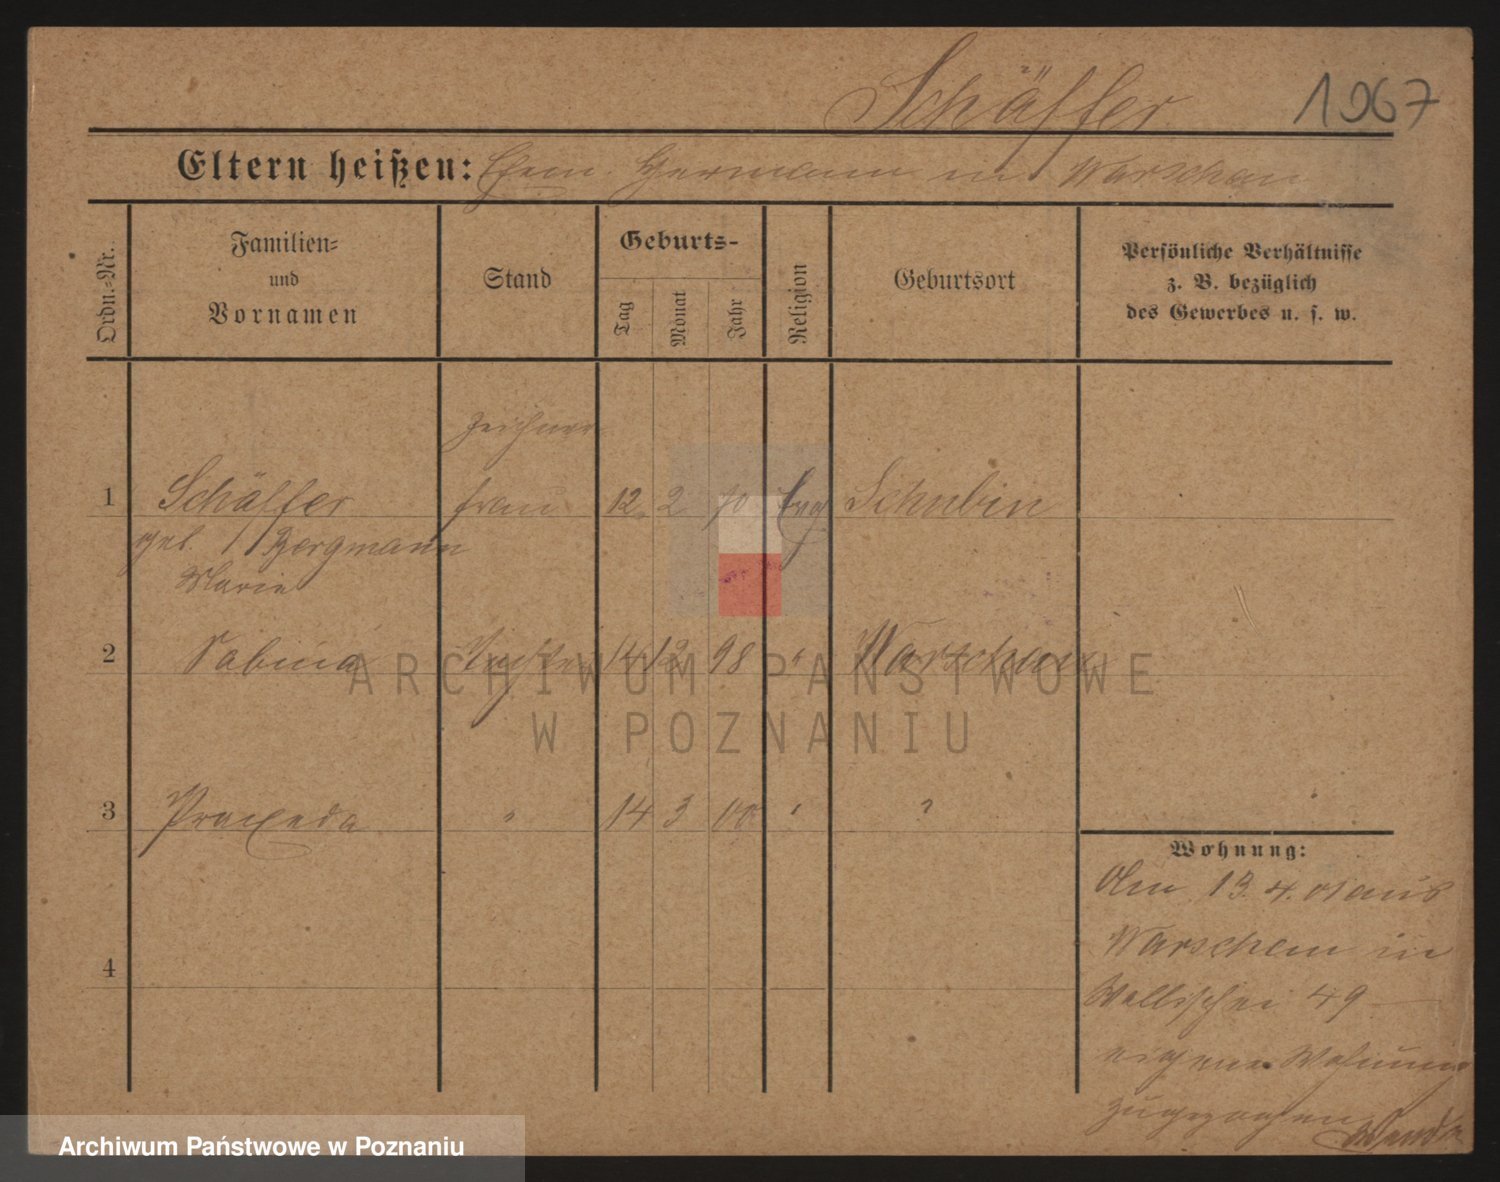 Schäffer 1967
Eltern heißen: Ehem. Hermann in Warschau
Ordn.-Nr.
Familien-
und
Vornamen
Stand
Geburts-
Tag
Monat
Jahr
Religion
Geburtsort
Persönliche Verhältnisse
z. B. bezüglich
des Gewerbes u. s. w.
Zeichner
1 Schäffer frau 12 2 70 Evg Schubin
geb. Bergmann
Marie
2 Sabina Tochter 14 12 98 " Warschau
ARCHIWUM PAŃSTWOWE
W POZNANIU
3 Praxeda " 14 3 00 " "
Wohnung:
Am 13.4.01 aus
Warschau in
Wallischei 49
eigene Wohnung
zugezogen
4
Archiwum Państwowe w Poznaniu